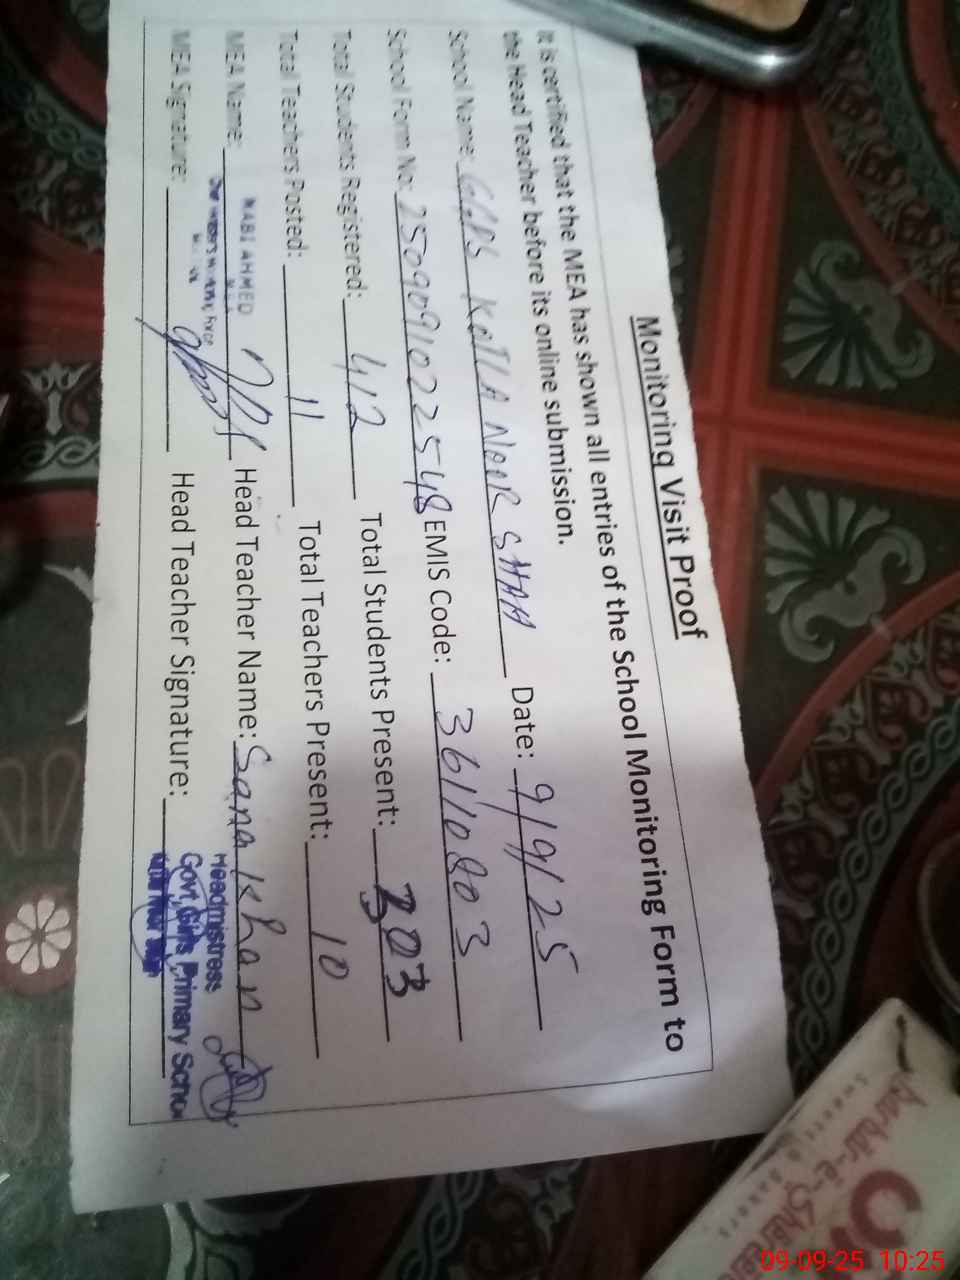 Monitoring Visit Proof
It is certified that the MEA has shown all entries of the School Monitoring Form to
the Head Teacher before its online submission.
School Name: GGPS KOTLA NOOR SHAH Date: 9/9/25
School Form No: 2509091022548 EMIS Code: 36110803
Total Students Registered: 412 Total Students Present: 303
Total Teachers Posted: 11 Total Teachers Present: 10
MEA Name: NABI AHMED Head Teacher Name: Sana Khan
MEA Signature: Head Teacher Signature:
Headmistress
Govt, Girls Primary Schoo
09-09-25 10:25